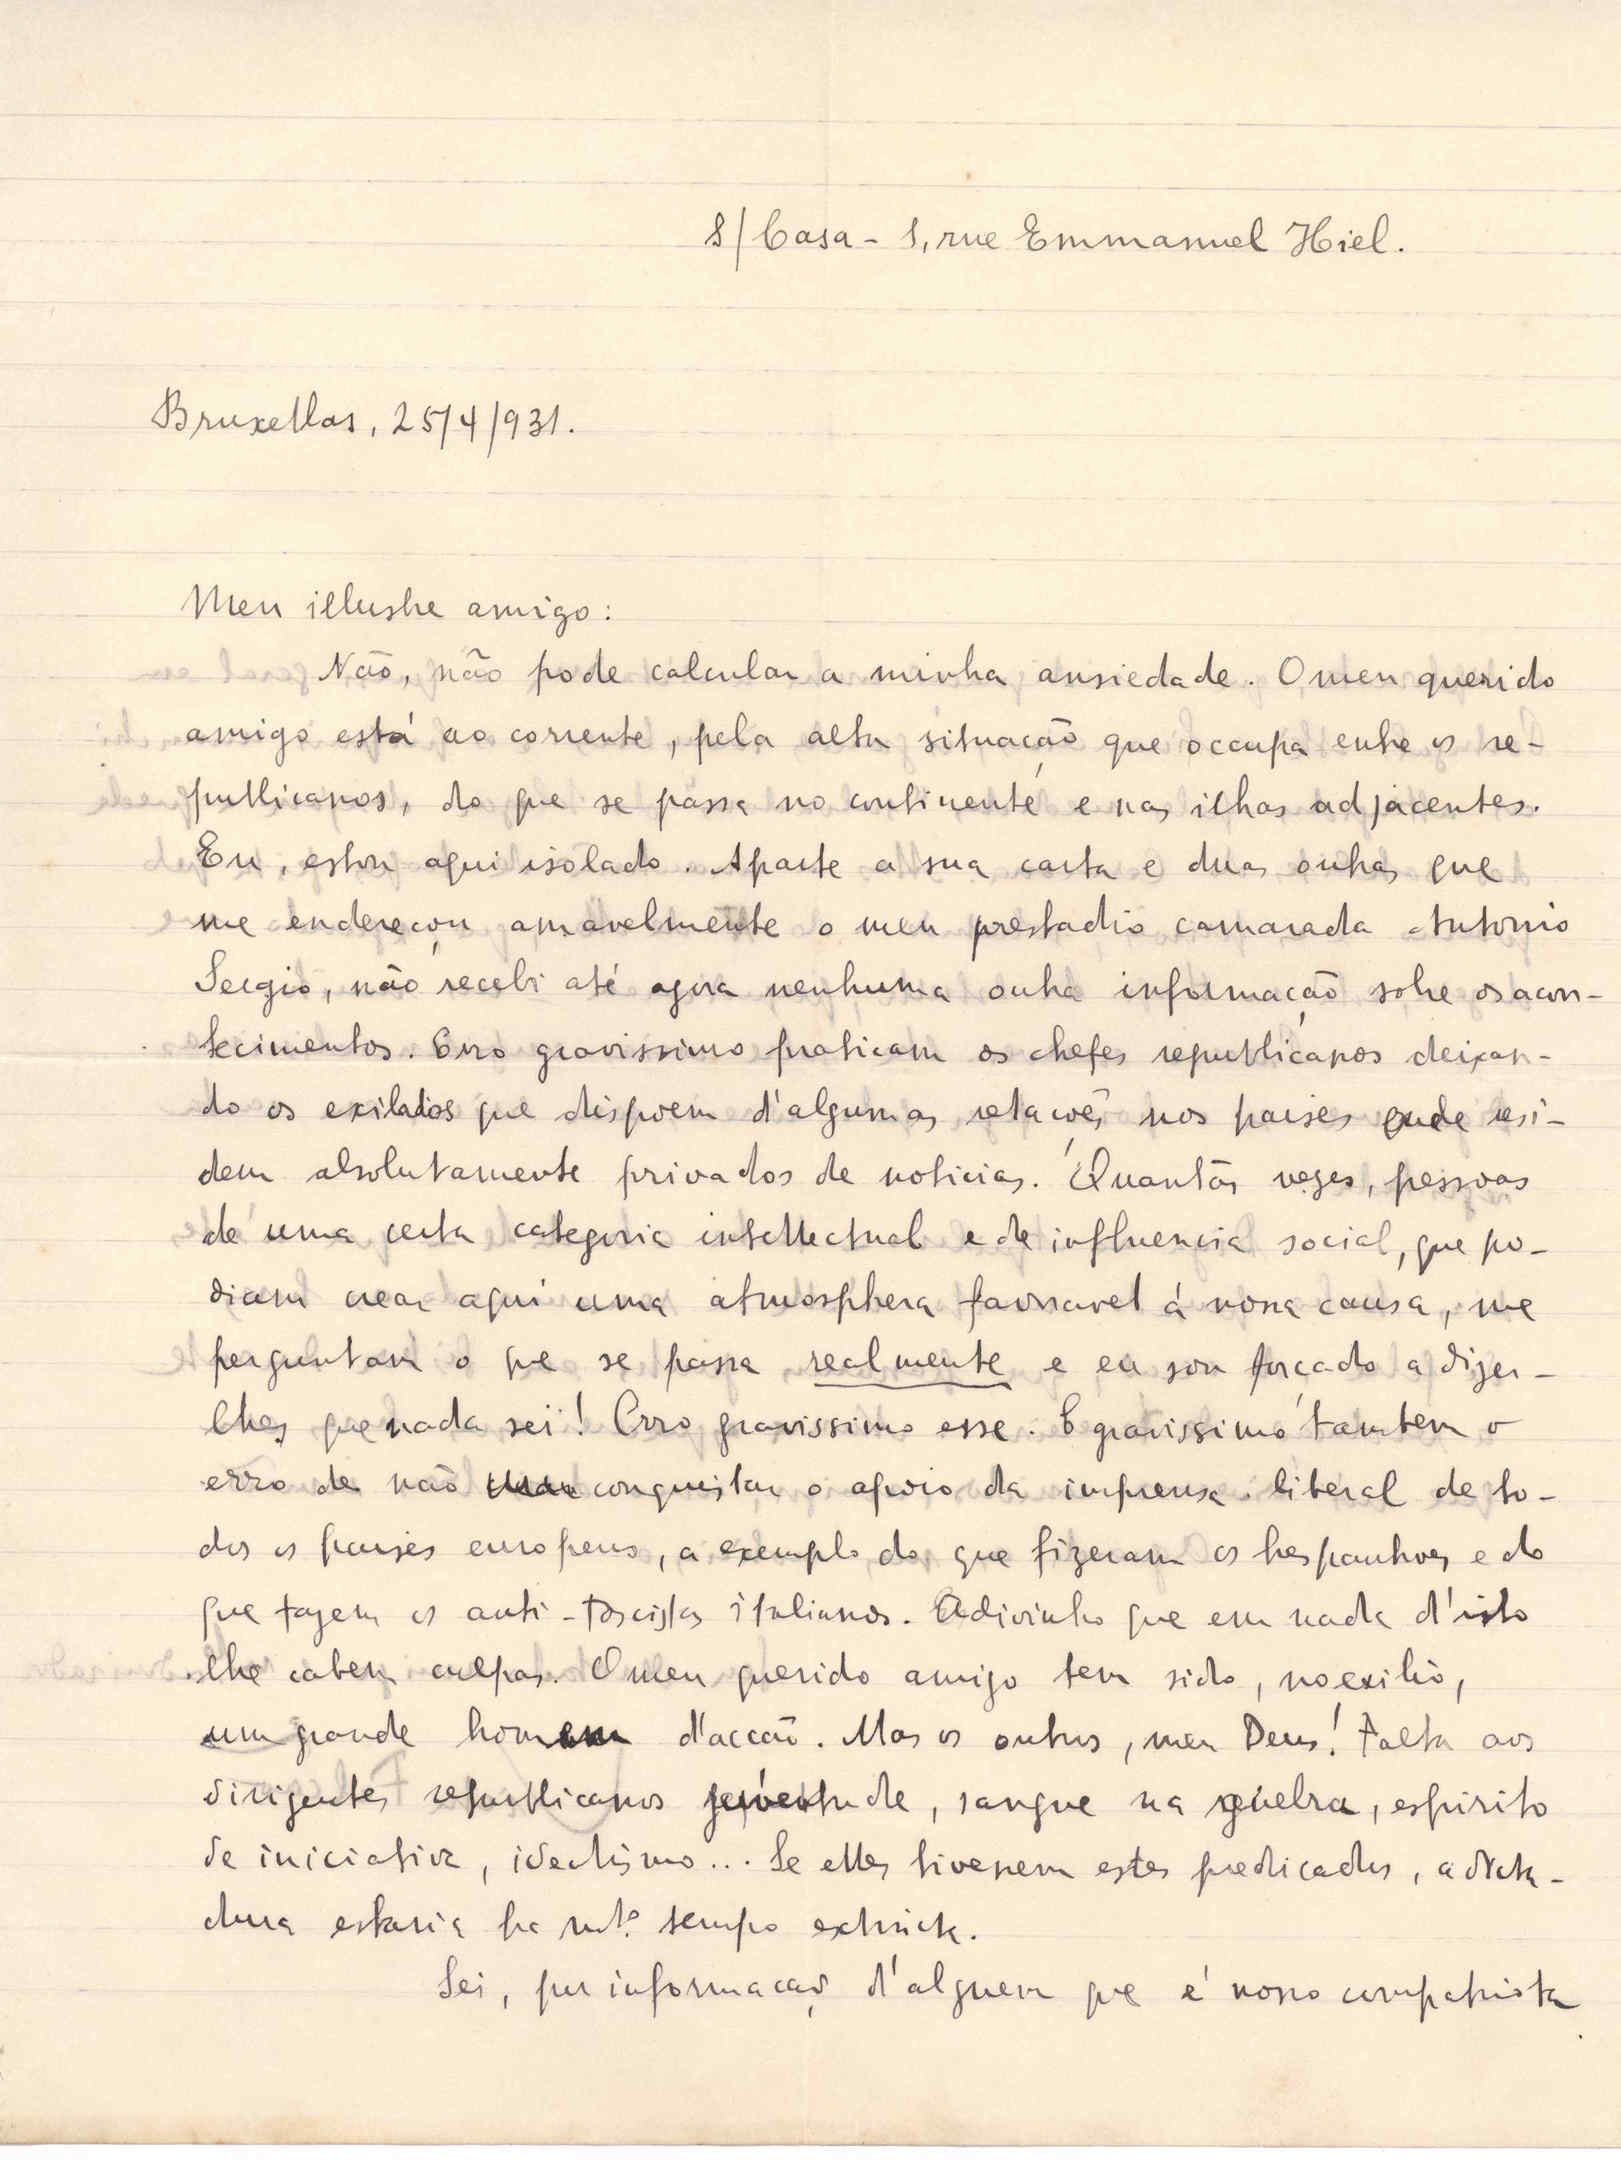 S/Casa - 1, rue Emmanuel Hiel.
Bruxellas, 25/4/931.
Meu illustre amigo:
Não, não pode calcular a minha ansiedade. O meu querido
amigo está ao corrente, pela alta situação que occupa entre os re-
publicanos, do que se passa no continente e nas ilhas adjacentes.
Eu, estou aqui isolado. Aparte a sua carta e duas outras que
me endereçou amavelmente o meu prestadio camarada Antonio
Sergio, não recebi até agora nenhuma outra informação sobre os acon-
tecimentos. Erro gravissimo praticam os chefes republicanos deixan-
do os exilados que dispoem d'algumas relações nos paises onde resi-
dem absolutamente privados de noticias. Quantas vezes, pessoas
de uma certa categoria intellectual e de influencia social, que po-
diam crear aqui uma atmosphera favoravel á nossa causa, me
perguntam o que se passa realmente e eu sou forçado a dizer-
lhes que nada sei! Erro gravissimo esse. E gravissimo tambem o
erro de não conquistar o apoio da imprensa liberal de to-
dos os paises europeus, a exemplo do que fizeram os hespanhoes e do
que fazem os anti-fascistas italianos. Adivinho que em nada d'isto
lhe cabem culpas. O meu querido amigo tem sido, no exilio,
um grande homem d'acção. Mas os outros, meu Deus! Falta aos
dirigentes republicanos juventude, sangue na guelra, espirito
de iniciativa, idealismo... Se elles tivessem estes predicados, a dicta-
dura estaria ha mto. tempo extincta.
Sei, por informação d'alguem que é nosso compatriota